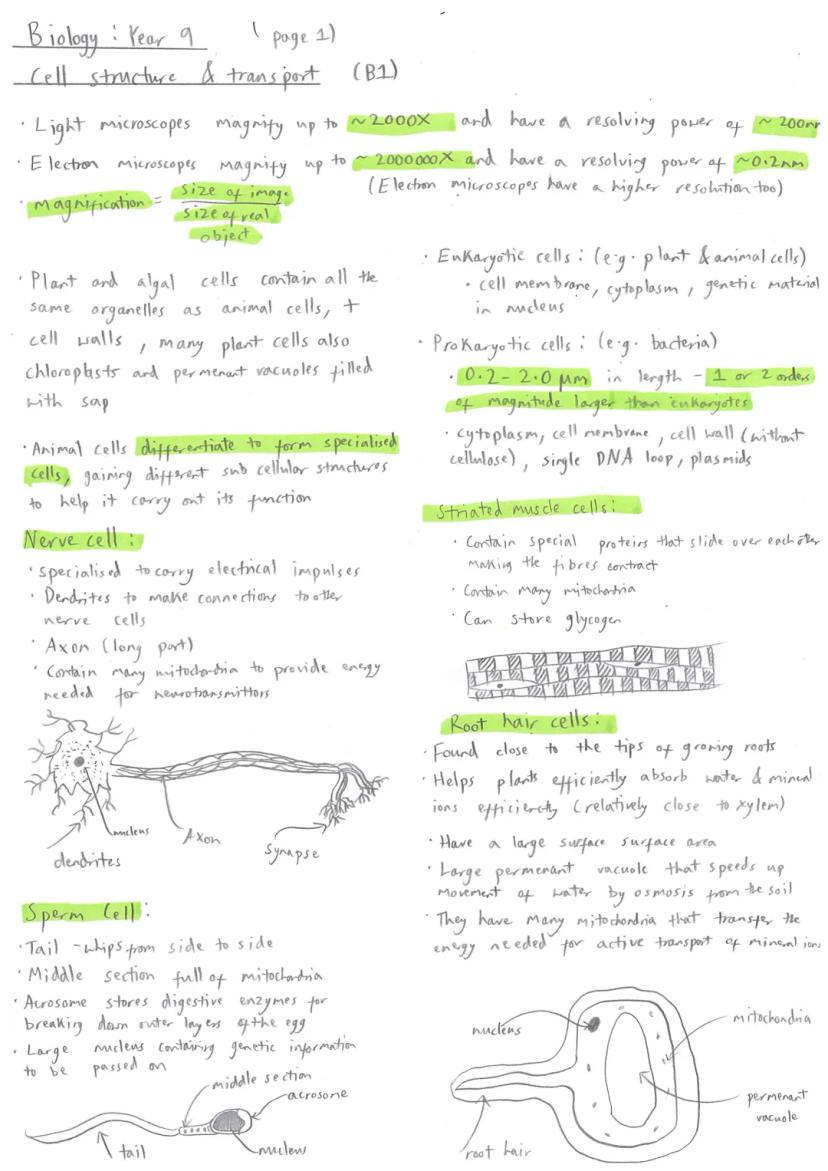 Biology : Year 9 ( page 1)
Cell structure & transport (B1)
· Light microscopes magnify up to ~2000X and have a resolving power of ~ 200nm
· Electron microscopes magnify up to ~ 2000000X and have a resolving power of ~0.2nm
(Electron microscopes have a higher resolution too)
· magnification = size of image
size of real
object
· Plant and algal cells contain all the
same organelles as animal cells, +
cell walls , many plant cells also
chloroplasts and permenant vacuoles filled
with sap
· Animal cells differentiate to form specialised
cells, gaining different sub cellular structures
to help it carry out its function
Nerve cell :
· Specialised to carry electrical impulses
· Dendrites to make connections to other
nerve cells
· Axon (long part)
· Contain many mitochordia to provide energy
needed for neurotransmittors
nucleus
Axon
synapse
dendrites
Sperm Cell :
· Tail - whips from side to side
· Middle section full of mitochondria
· Acrosome stores digestive enzymes for
breaking down outer layers of the egg
· Large nucleus containing genetic information
to be passed on
middle section
acrosome
tail
nucleus
· Eukaryotic cells : (e.g. plant & animal cells)
· cell membrane, cytoplasm , genetic material
in nucleus
· Prokaryotic cells : (e.g. bacteria)
· 0.2 - 2.0 µm in length - 1 or 2 orders
of magnitude larger than eukaryotes
· cytoplasm, cell membrane , cell wall (without
cellulose) , single DNA loop , plasmids
Striated muscle cells :
· Contain special proteins that slide over each other
making the fibres contract
· Contain many mitochondria
· Can store glycogen
Root hair cells :
· Found close to the tips of growing roots
· Helps plants efficiently absorb water & mineral
ions efficiently (relatively close to xylem)
· Have a large surface surface area
· Large permenant vacuole that speeds up
movement of water by osmosis from the soil
· They have many mitochondria that transfer the
energy needed for active transport of mineral ions
nucleus
mitochondria
permenant
vacuole
root hair